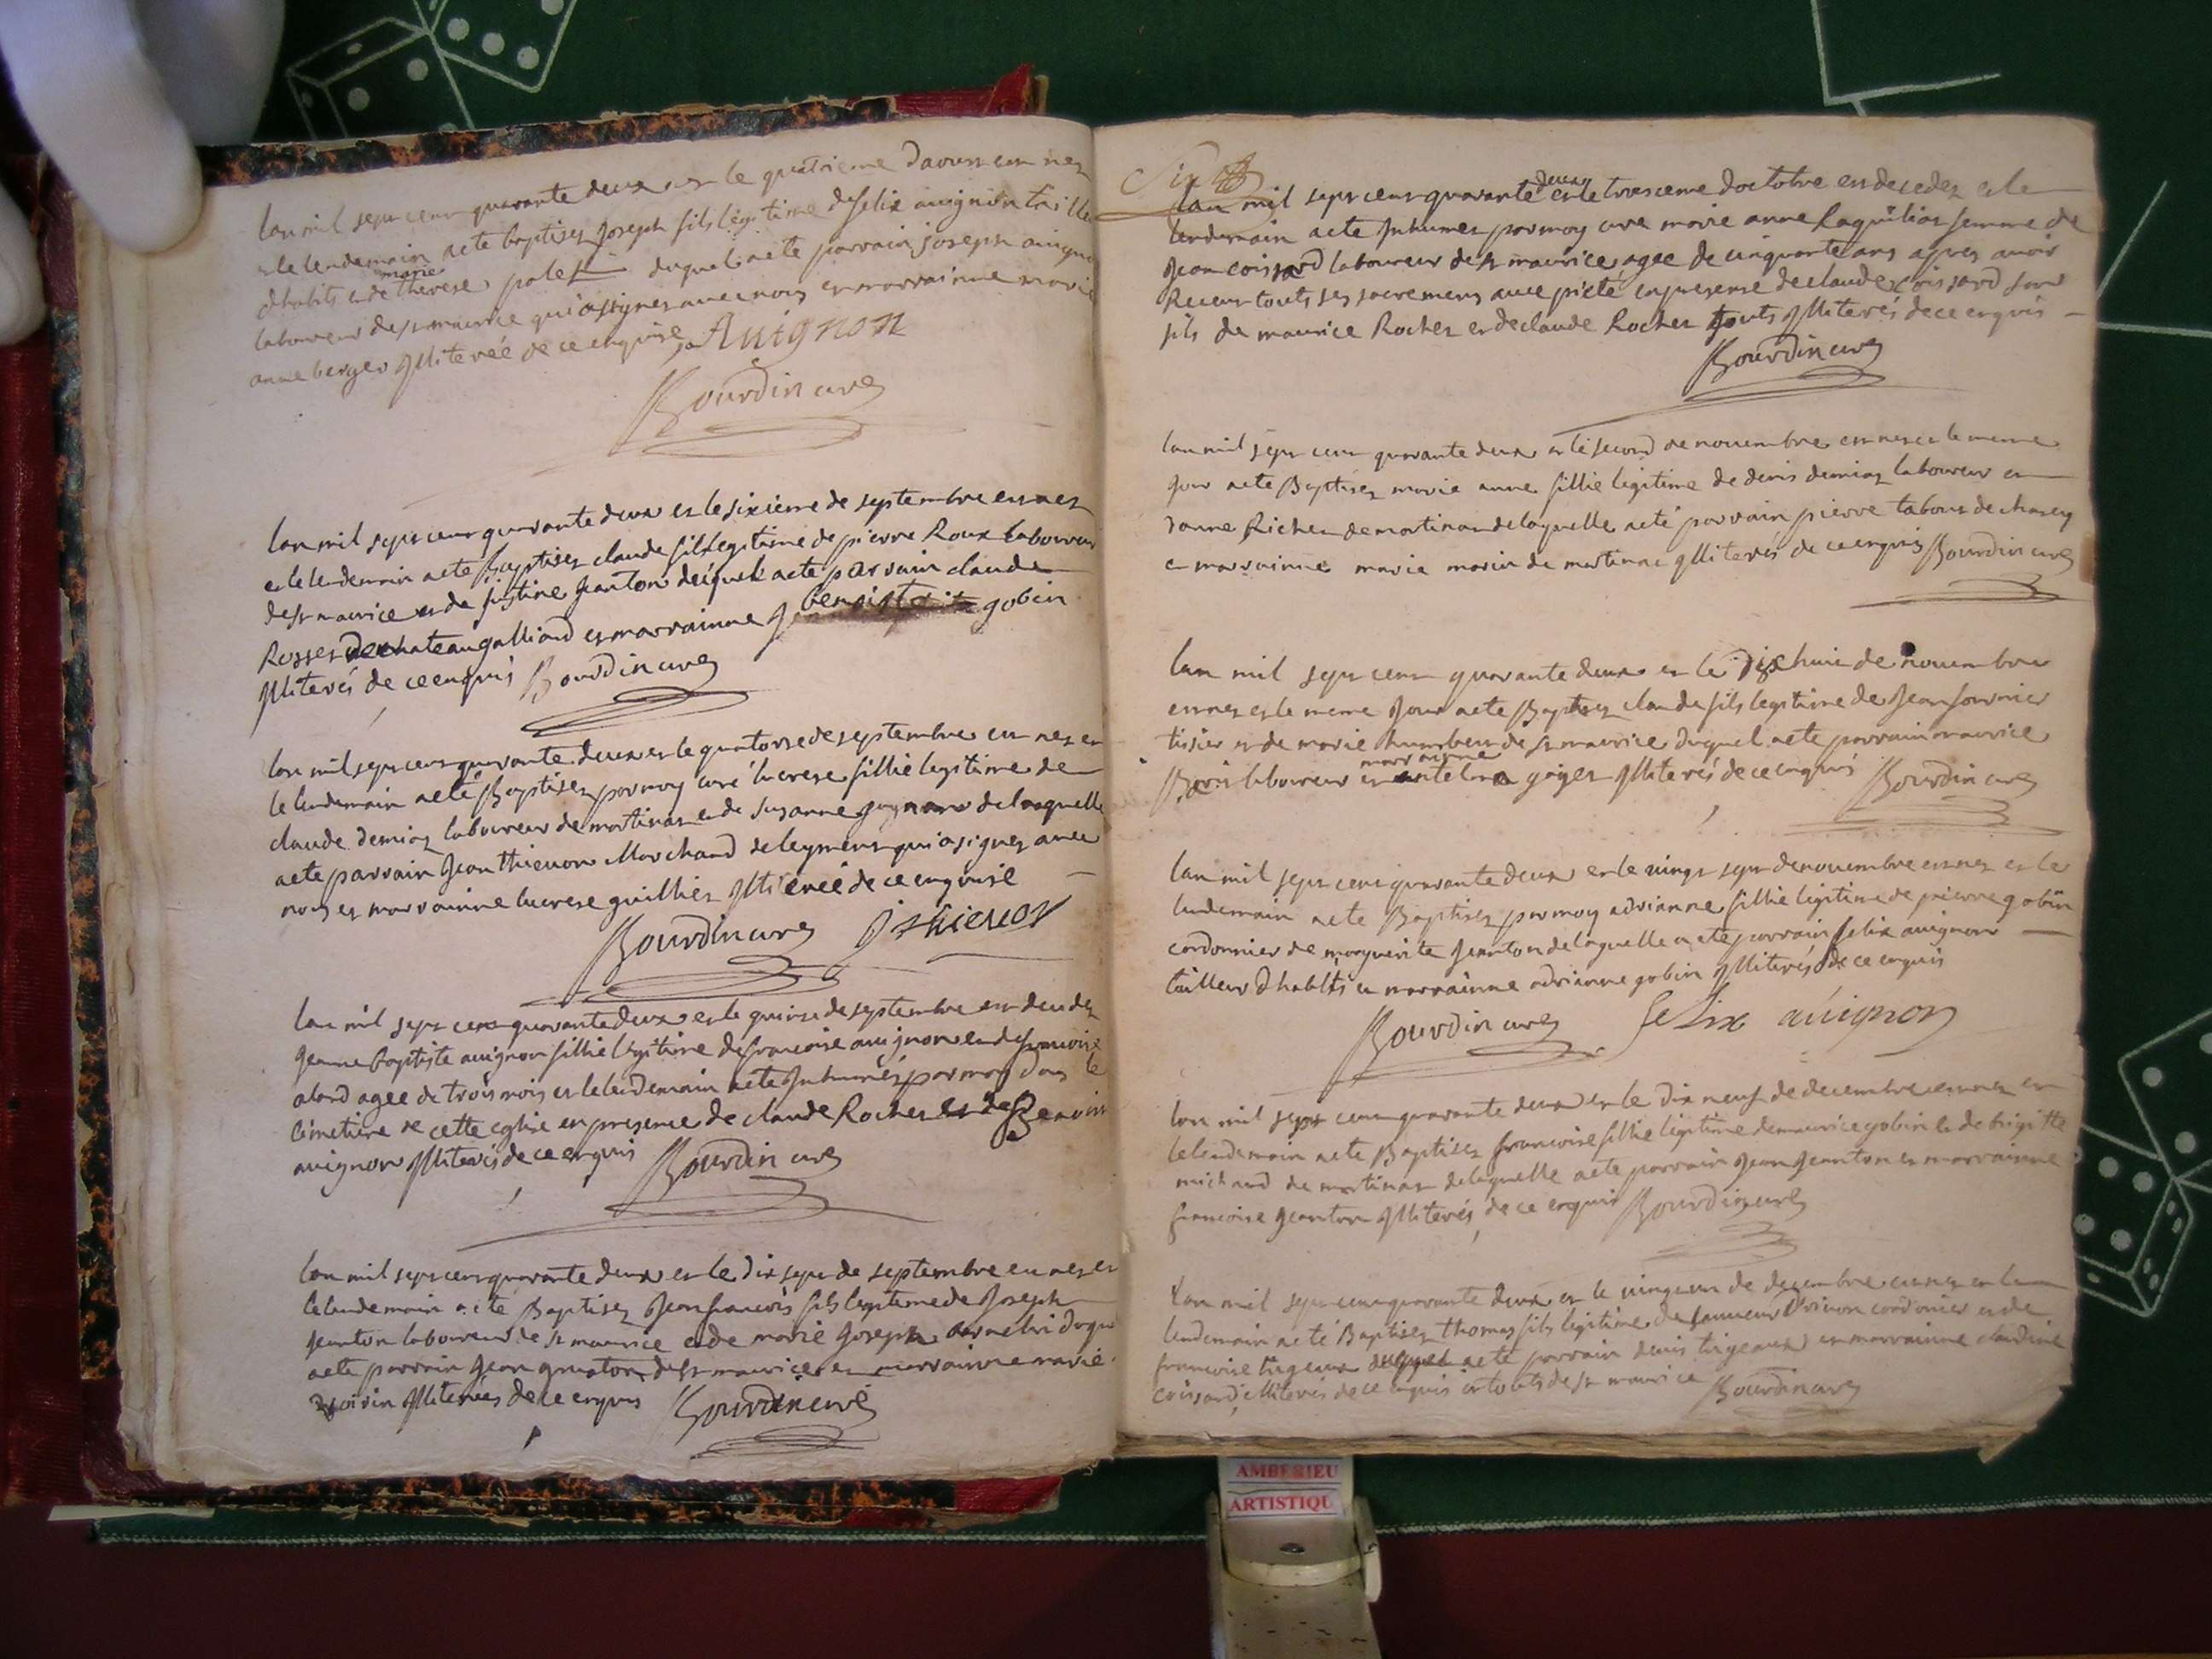 lan mil sept cent quarante deux et le quatrieme daoust est nez
et le lendemain aete baptisez joseph fils legitime de felix auignon taille
dhabits et de marie therese palest duquel aete parrain joseph auigno
laboureur de st maurice qui asignez avec nous et marrainne marie
anne berger jlliterée de ce enquise ja Auignon
Bourdin curez
lan mil sept cent quarante deux et le sixieme de septembre est nez
et le lendemain aete Baptisez claude fils legitime de pierre Roux laboureur
de st maurice et de justine jeanton duquel aete parrain claude
Rosset de chateau galliard et marrainne benoiste gobin
jlliterés de ce enquis Bourdin curez
lan mil sept cent quarante deux et le quatorse de septembre est nez et
le lendemain aeté Baptisez par moy curé lucrese fillie legitime de
claude demiaz laboureur de martinaz et de suzanne de laquelle
aete parrain jean thieuon Marchand de leyment qui a signez avec
nous et marrainne lucrese guillier jlliterée de ce enquise
Bourdin curez j thieuon
lan mil sept cent quarante deux et le quinse de septembre est decedez
jeanne baptiste auignon fillie legitime de francoise auignon et de
alard agee de trois mois et le lendemain aete jnhumés par moy dans le
cimetiere de cette eglise en presence de claude Rochez et de Benoist
auignon jlliterés de ce enquis Bourdin curez
lan mil sept cent quarante deux et le dix sept de septembre est nez et
le lendemain aeté Baptisez jean francois fils legitime de joseph
jeanton laboureur de st maurice et de marie joseph duque
aete parrain jean gruaton de st maurice et marrainne marie
voisin jlliterées de ce enquis Bourdin curé
lan mil sept cent quarante deux et le troisieme doctobre est decedez et le
lendemain aete jnhumez par moy cure marie anne femme de
jean coissard laboureur de st maurice agee de cinquante ans apres auoir
Receu touts ses sacremens avec pieté en presense de claude coissard son
fils de maurice Rochez et de claude Rochez touts jlliterés de ce enquis
Bourdin curez
lan mil sept cent quarante deux et le second de nouembre est nes et le meme
jour aete Baptisez marie anne fillie legitime de denis demiaz laboureur et
danne Richer de martinaz de laquelle aeté parrain pierre tabour de chasey
et marrainne marie marin de martinaz jlliterés de ce enquis Bourdin curez
lan mil sept cent quarante deux et le dix huit de nouembre
est nez et le meme jour aete Baptisez claude fils legitime de jean fournier
tissier et de marie humbert de st maurice duquel aete parrain maurice
Boris laboureur et marrainne gayet jlliterés de ce enquis Bourdin curez
lan mil sept cent quarante deux et le vingt sept de nouembre est nez et le
lendemain aete Baptisez par moy adrianne fillie legitime de pierre gobin
cordonnier de marguerite jeanton de laquelle a ete parrain felix auignon
tailleur dhabits et marrainne adrianne gobin jlliterés de ce enquis
Bourdin curez felix auignon
lan mil sept cent quarante deux et le dix neuf de decembre est nez et
le lendemain aete Baptisez francoise fillie legitime de maurice gobin et de brigitte
michaud de martinaz de laquelle aete parrain jean jeanton et marrainne
francoise jeanton jlliterés de ce enquis Bourdin curez
lan mil sept cent quarante deux et le vingt un de decembre est nez et le
lendemain aeté Baptisez thomas fils legitime de cordonier et de
francoise tirgeaux duquel aete parrain denis tirgeaux et marrainne claudine
coissard jlliterés de ce enquis et touts de st maurice Bourdin curez
AMBERIEU
ARTISTIQU